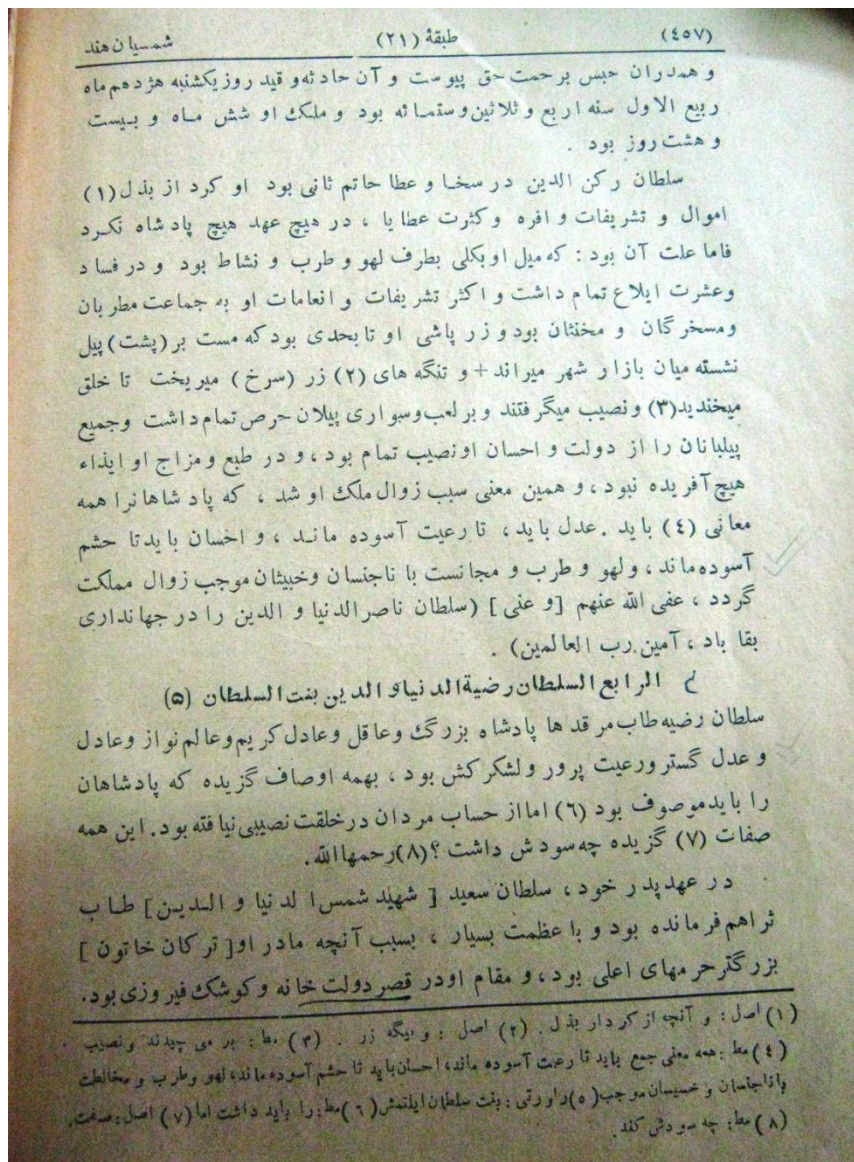 (٤٥٧) طبقهٔ (٢١) شمسیان هند
و همدران حبس برحمت حق پیوست و آن حادثه و قید روز یکشنبه هژدهم ماه
ربیع الاول سنه اربع و ثلاثین وستمائه بود و ملک او شش ماه و بیست
و هشت روز بود .
سلطان رکن الدین در سخا و عطا حاتم ثانی بود او کرد از بذل (١)
اموال و تشریفات وافره وکثرت عطایا ، در هیچ عهد هیچ پادشاه نکرد
فاما علت آن بود : که میل او بکلی بطرف لهو و طرب و نشاط بود و در فساد
وعشرت ایلاع تمام داشت و اکثر تشریفات و انعامات او به جماعت مطربان
ومسخرگان و مخنثان بود و زر پاشی او تا بحدی بود که مست بر (پشت) پیل
نشسته میان بازار شهر میراند + و تنگه های (٢) زر (سرخ) میریخت تا خلق
میخندید(٣) و نصیب میگرفتند و بر لعب وسواری پیلان حرص تمام داشت وجمیع
پیلبانان را از دولت و احسان او نصیب تمام بود ، و در طبع و مزاج او ایذاء
هیچ آفریده نبود ، و همین معنی سبب زوال ملک او شد ، که پادشاهانرا همه
معانی (٤) باید . عدل باید ، تا رعیت آسوده ماند ، و اخسان باید تا حشم
آسوده ماند ، و لهو و طرب و مجانست با ناجنسان وخبیثان موجب زوال مملکت
گردد ، عفی الله عنهم [و عنی] (سلطان ناصر الدنیا و الدین را در جهانداری
بقا باد ، آمین رب العالمین) .
الرابع السلطان رضیة الدنیا و الدین بنت السلطان (٥)
سلطان رضیه طاب مرقدها پادشاه بزرگ وعاقل وعادل کریم وعالم نواز وعادل
و عدل گستر ورعیت پرور ولشکر کش بود ، بهمه اوصاف گزیده که پادشاهان
را باید موصوف بود (٦) اما از حساب مردان در خلقت نصیبی نیافته بود. این همه
صفات (٧) گزیده چه سودش داشت ؟ (٨) رحمها الله .
در عهد پدر خود ، سلطان سعید [ شهید شمس ا لدنیا و الدین ] طاب
ثراهم فرمانده بود و با عظمت بسیار ، بسبب آنچه مادر او [ ترکان خاتون ]
بزرگتر حرمهای اعلی بود ، و مقام او در قصر دولت خانه و کوشک فیروزی بود.
(١) اصل : و آنچه از کردار بذل . (٢) اصل : و یگه زر . (٣) مط : بر می چیدند ونصیب
(٤) مط : همه معنی جمع باید تا رعیت آسوده ماند، احسان باید تا حشم آسوده ماند، لهو وطرب و مخالطت
باناجنسان و خسیسان موجب (٥) راورتی : بنت سلطان ایلتمش (٦) مط : را باید داشت اما (٧) اصل : صفت.
(٨) مط: چه سودش کند.